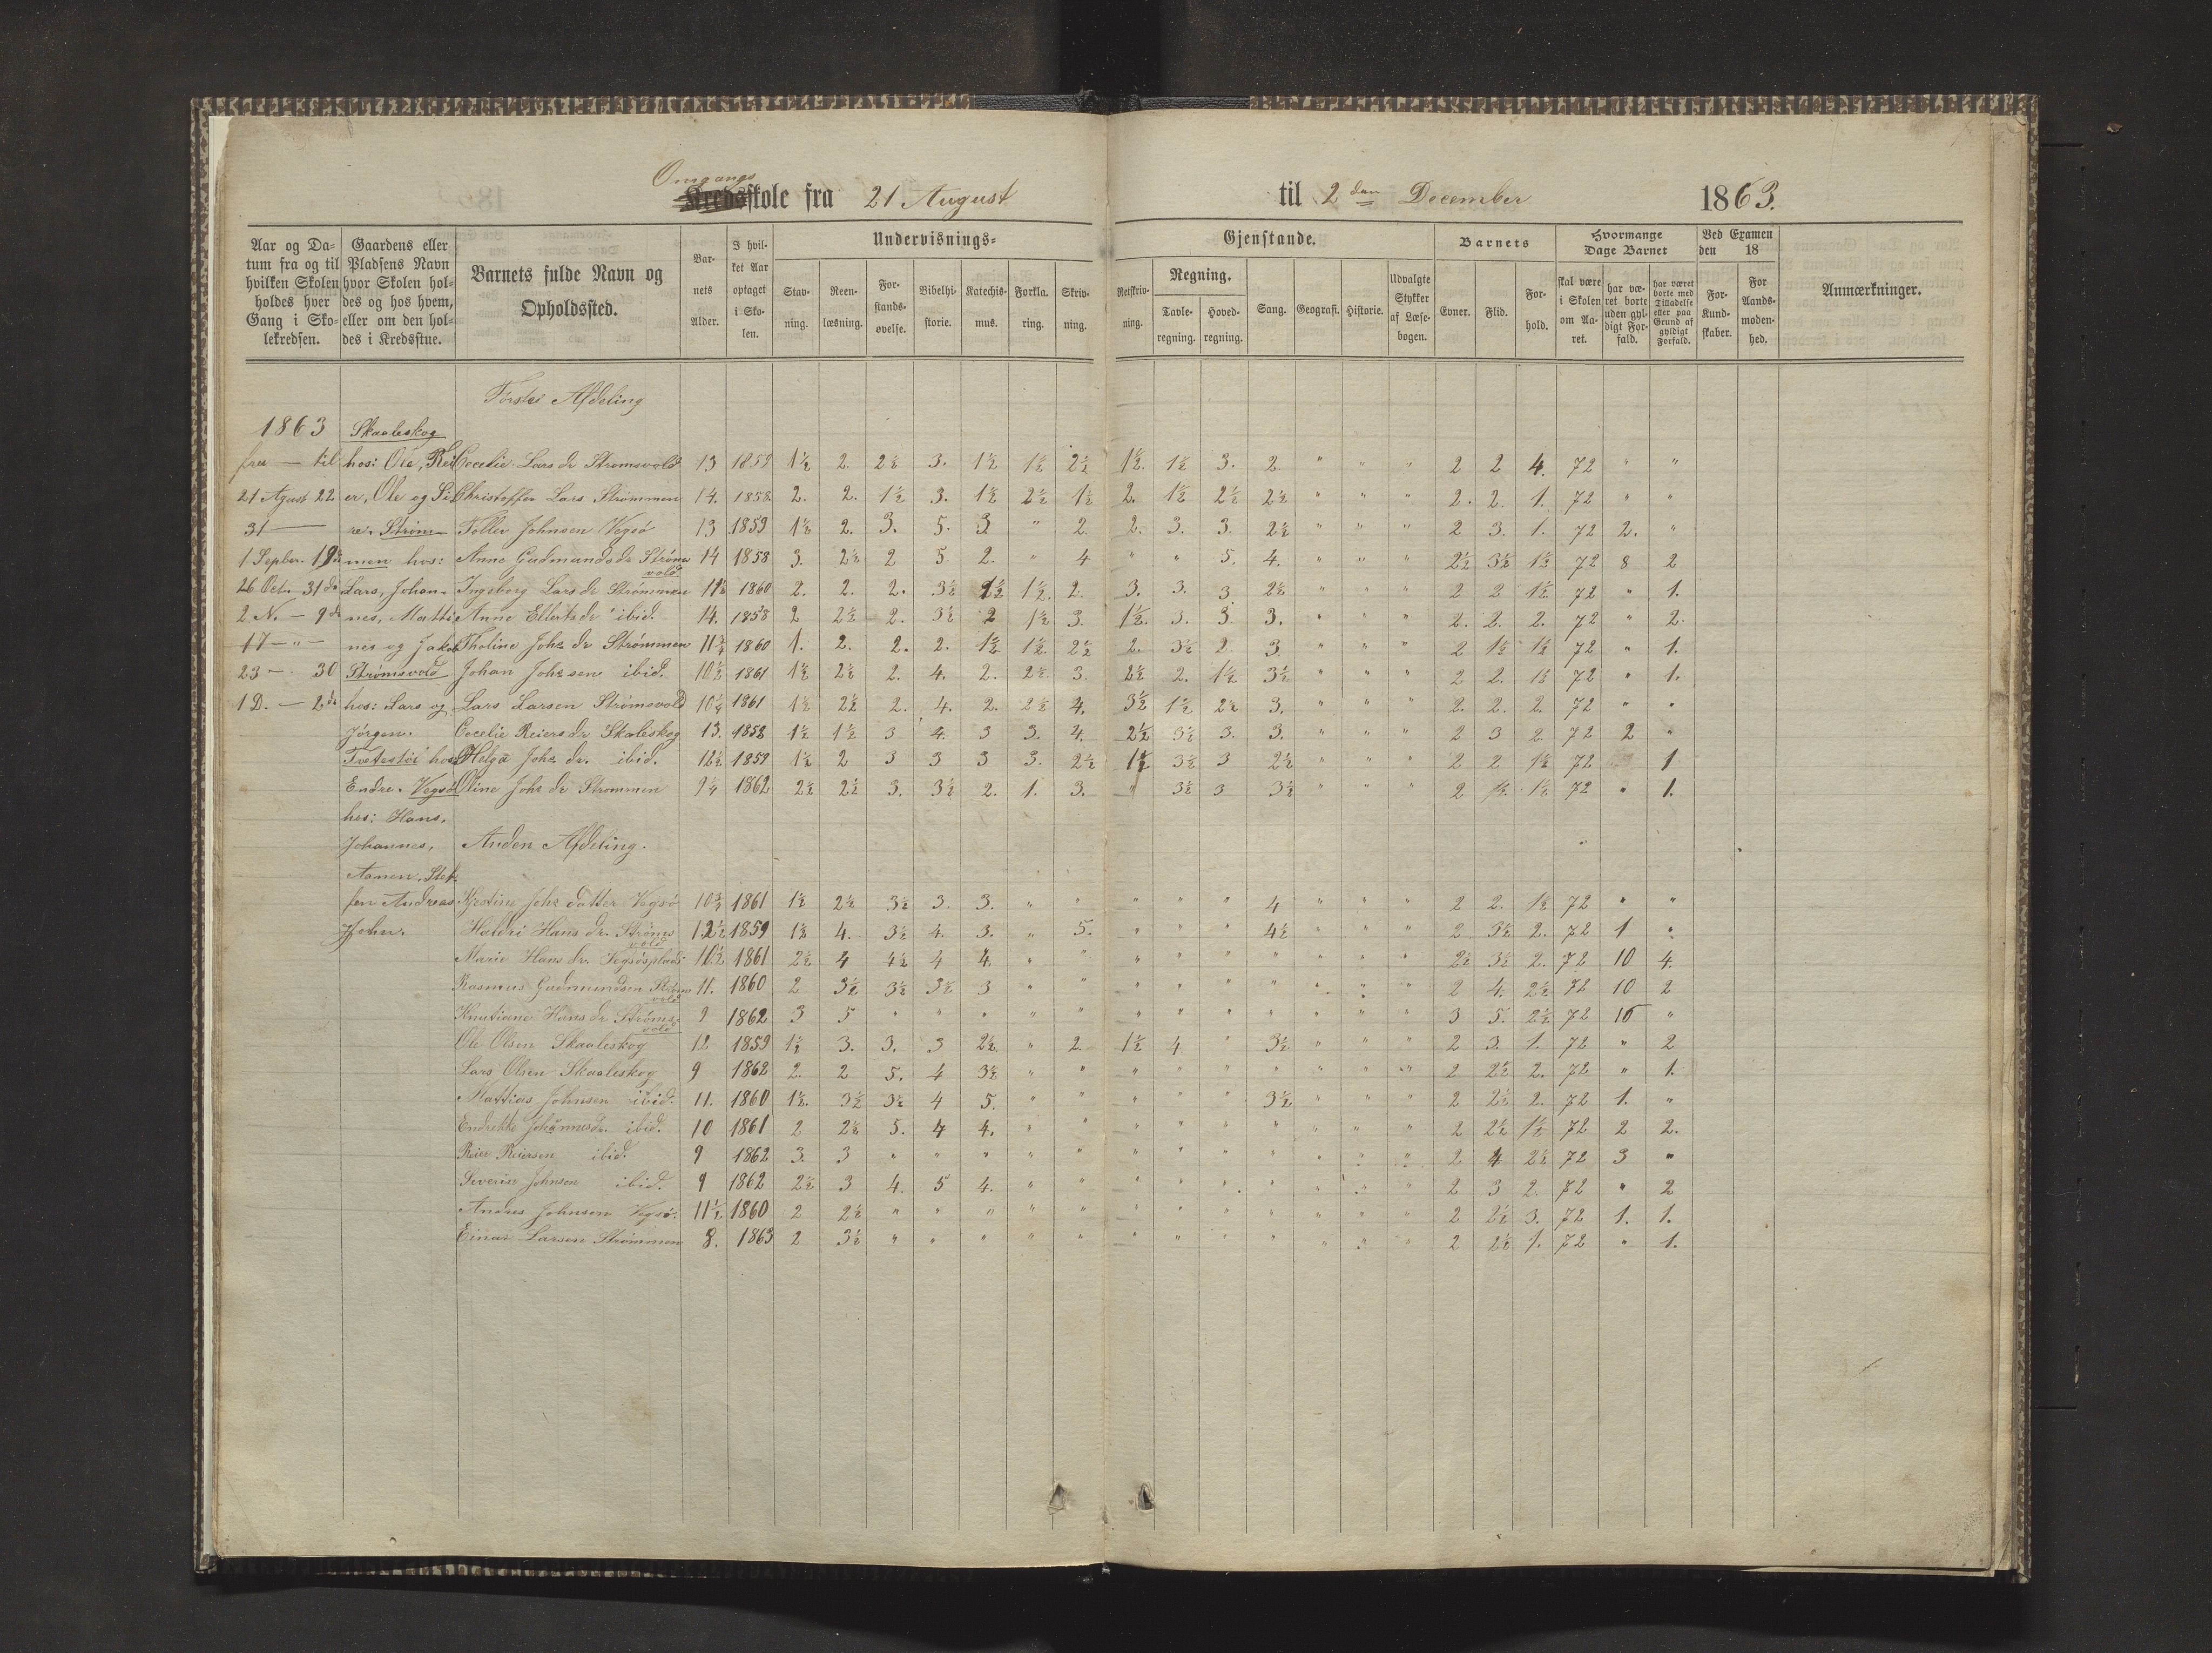 Omgangs
Kredsskole fra 21 August til 2den December 1863.
Aar og Datum fra og til hvilken Skolen holdes hver Gang i Skolekredsen.
Gaardens eller Pladsens Navn hvor Skolen holdes og hos hvem, eller om den holdes i Kredsstue.
Barnets fulde Navn og Opholdssted.
Barnets Alder.
I hvilket Aar optaget i Skolen.
Undervisnings-Gjenstande.
Stavning. Reenlæsning. Forstandsøvelse. Bibelhistorie. Katechismus. Forklaring. Skrivning. Retskrivning. Regning. Tavleregning. Hovedregning. Sang. Geografi. Historie. Udvalgte Stykker af Læsebogen.
Barnets
Evner. Flid. Forhold.
Hvormange Dage Barnet
skal være i Skolen om Aaret. har været borte uden gyldigt Forfald. har været borte med Tilladelse eller paa Grund af gyldigt Forfald.
Ved Examen den 18
For Kundskaber. For Aandsmodenhed.
Anmærkninger.
Første Afdeling
1863 Skaaleskog
fra — til hos: Ole, Rei Cecelie Lars dr Strømsvold 13 1859 1½ 2. 2½ 3. 1½ 1½ 2½ 1½. 1½ 3. 2. " " " 2 2 4. 72 " "
21 Agust 22 er, Ole og Si Christoffer Lars Strømmen 14. 1858 2. 2. 1½ 3. 1½ 2½ 1½ 2. 1½ 2½ 2½ " " " 2. 2. 1. 72 " "
31 — re. Strøm- Toller Johnsen Vegsø 13 1859 1½ 2. 3. 5. 3 " 2. 2. 3. 3. 2½ " " " 2 3. 1. 72 2. "
1 Sepber. 18de men hos: Anne Gudmundsdr Strømsvold 14 1858 3. 2½ 2 5. 2. " 4 " " 5. 4. " " " 2½ 3½ 1½ 72 8 2
26 Octr. 31de Lars, Johan- Ingeborg Lars dr Strømmen 11½ 1860 2. 2. 2. 3½ 1½ 1½. 2. 3. 3. 3 2½ " " " 2 2 1½ 72 " 1.
2 N. — 9de nes, Matti Anne Ellertsdr ibid. 14. 1858 2 2½ 2. 3½ 2 1½ 3. 1½. 3. 3. 3. " " " 2. 2. 2. 72 " 2.
17 — " — nes og Jakob Tholine Johs dr Strømmen 11¾ 1860 1. 2. 2. 2. 1½ 1½. 2½ 2. 3½ 2 3. " " " 2 1½ 1½ 72 " 1.
23 — 30 Strømsvold Johan Johs sen ibid. 10½ 1861 1½ 2½ 2. 4. 2. 2½. 3. 2½ 2. 1½ 3½ " " " 2 2. 1½ 72 " 1.
1 D. — 2de hos: Lars og Lars Larsen Strømsvold 10¼ 1861 1½ 2½ 2. 4. 2. 2½ 4. 3½ 1½ 2½ 3. " " " 2. 2. 2. 72 " "
Jørgen. Cecelie Reiersdr Skaaleskog 13. 1858 1½ 1½ 3 4. 3 3. 4. 2½ 3½ 3. 3. " " " 2 3 2 72 2 "
hos Helga Johs dr. ibid. 12½ 1859 1½ 2 3 3 3 3. 2½ 1½ 3½ 3 2½ " " " 2 2 1½ 72 1
Endre. Vegsø Oline Johs dr Strømmen 9¼ 1862 2½ 2½ 3. 3½ 2. 1. 3. " 3½ 3 3½ " " " 2 1½. 1½ 72 " 1.
hos: Hans,
Johannes, Anden Afdeling.
Stef-
fen Andreas Kjestine Johs datter Vegsø 10¾ 1861 1½ 2½ 3½ 3. 3. " " " " " 4 " " " 2 2. 1½ 72 " "
John. Hans dr. Strømsvold 12½ 1859 1½ 4. 3½ 4. 3. " 5. " " " 4½ " " " 2 3½ 2. 72 1 "
Marie Hans dr. Vegsøplads 10½ 1861 2½ 4 4½ 4 4. " " " " " " " " " 2½ 3½ 2. 72 10 4.
Rasmus Gudmundsen Strømsvold 11. 1860 2 3½ 3½ 3½ 3 " " " " " " " " " 2 4. 2½ 72 10 2
Knutiane Hans dr Strømsvold 9 1862 3 5 " " " " " " " " " " " " 3 5. 2½ 72 "
Ole Olsen Skaaleskog 12 1859 1½ 3. 3. 3 2½ " 2. 1½ 4 " 3½ " " " 2 3. 1. 72 " 2
Lars Olsen Skaaleskog 9 1862 2. 2 5. 4 3½ " " " " " " " " " 2 2½ 2. 72 " 1.
Mattias Johnsen ibid. 11. 1860 1½. 3½ 3½ 4 5. " " " " " 3½ " " " 2 2½ 2. 72 1. "
Johannesdr. ibid. 10 1861 2 2½ 5. 4 4. " " " " " " " " " 2 2½ 1½ 72 2 2.
Reier Reiersen ibid. 9 1862 3. 3 " " " " " " " " " " " " 2 4 2½ 72 3 "
Severin Johnsen ibid. 9 1862 2½ 3 4. 5 4. " " " " " " " " " 2 3 2. 72 " 2
Andres Johnsen Vegsø. 11½ 1860 2 2½ " " " " " " " " " " " " 2 2½ 3. 72 1. 1.
Einar Larsen Strømmen 8. 1863 2 3½ " " " " " " " " " " " " 2 2½ 1. 72 " 1.